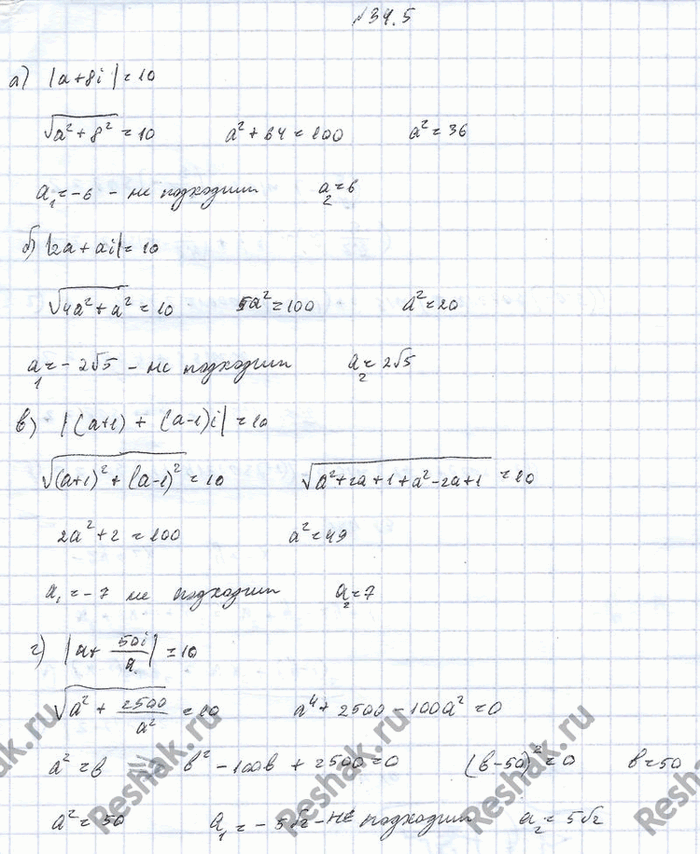 №34.5
а) |a+8i|=10
√(a²+8²)=10 a²+64=100 a²=36
a₁=-6 - не подходит a₂=6
б) |2a+ai|=10
√(4a²+a²)=10 5a²=100 a²=20
a₁=-2√5 - не подходит a₂=2√5
в) |(a+1)+(a-1)i|=10
√((a+1)²+(a-1)²)=10 √(a²+2a+1+a²-2a+1)=10
2a²+2=100 a²=49
a₁=-7 не подходит a₂=7
г) |a+50i/a|=10
√(a²+2500/a²)=10 a⁴+2500-100a²=0
a²=b b²-100b+2500=0 (b-50)²=0 b=50
a²=50 a₁=-5√2-не подходит a₂=5√2
Reshak.ru
Reshak.ru
Reshak.ru
Reshak.ru